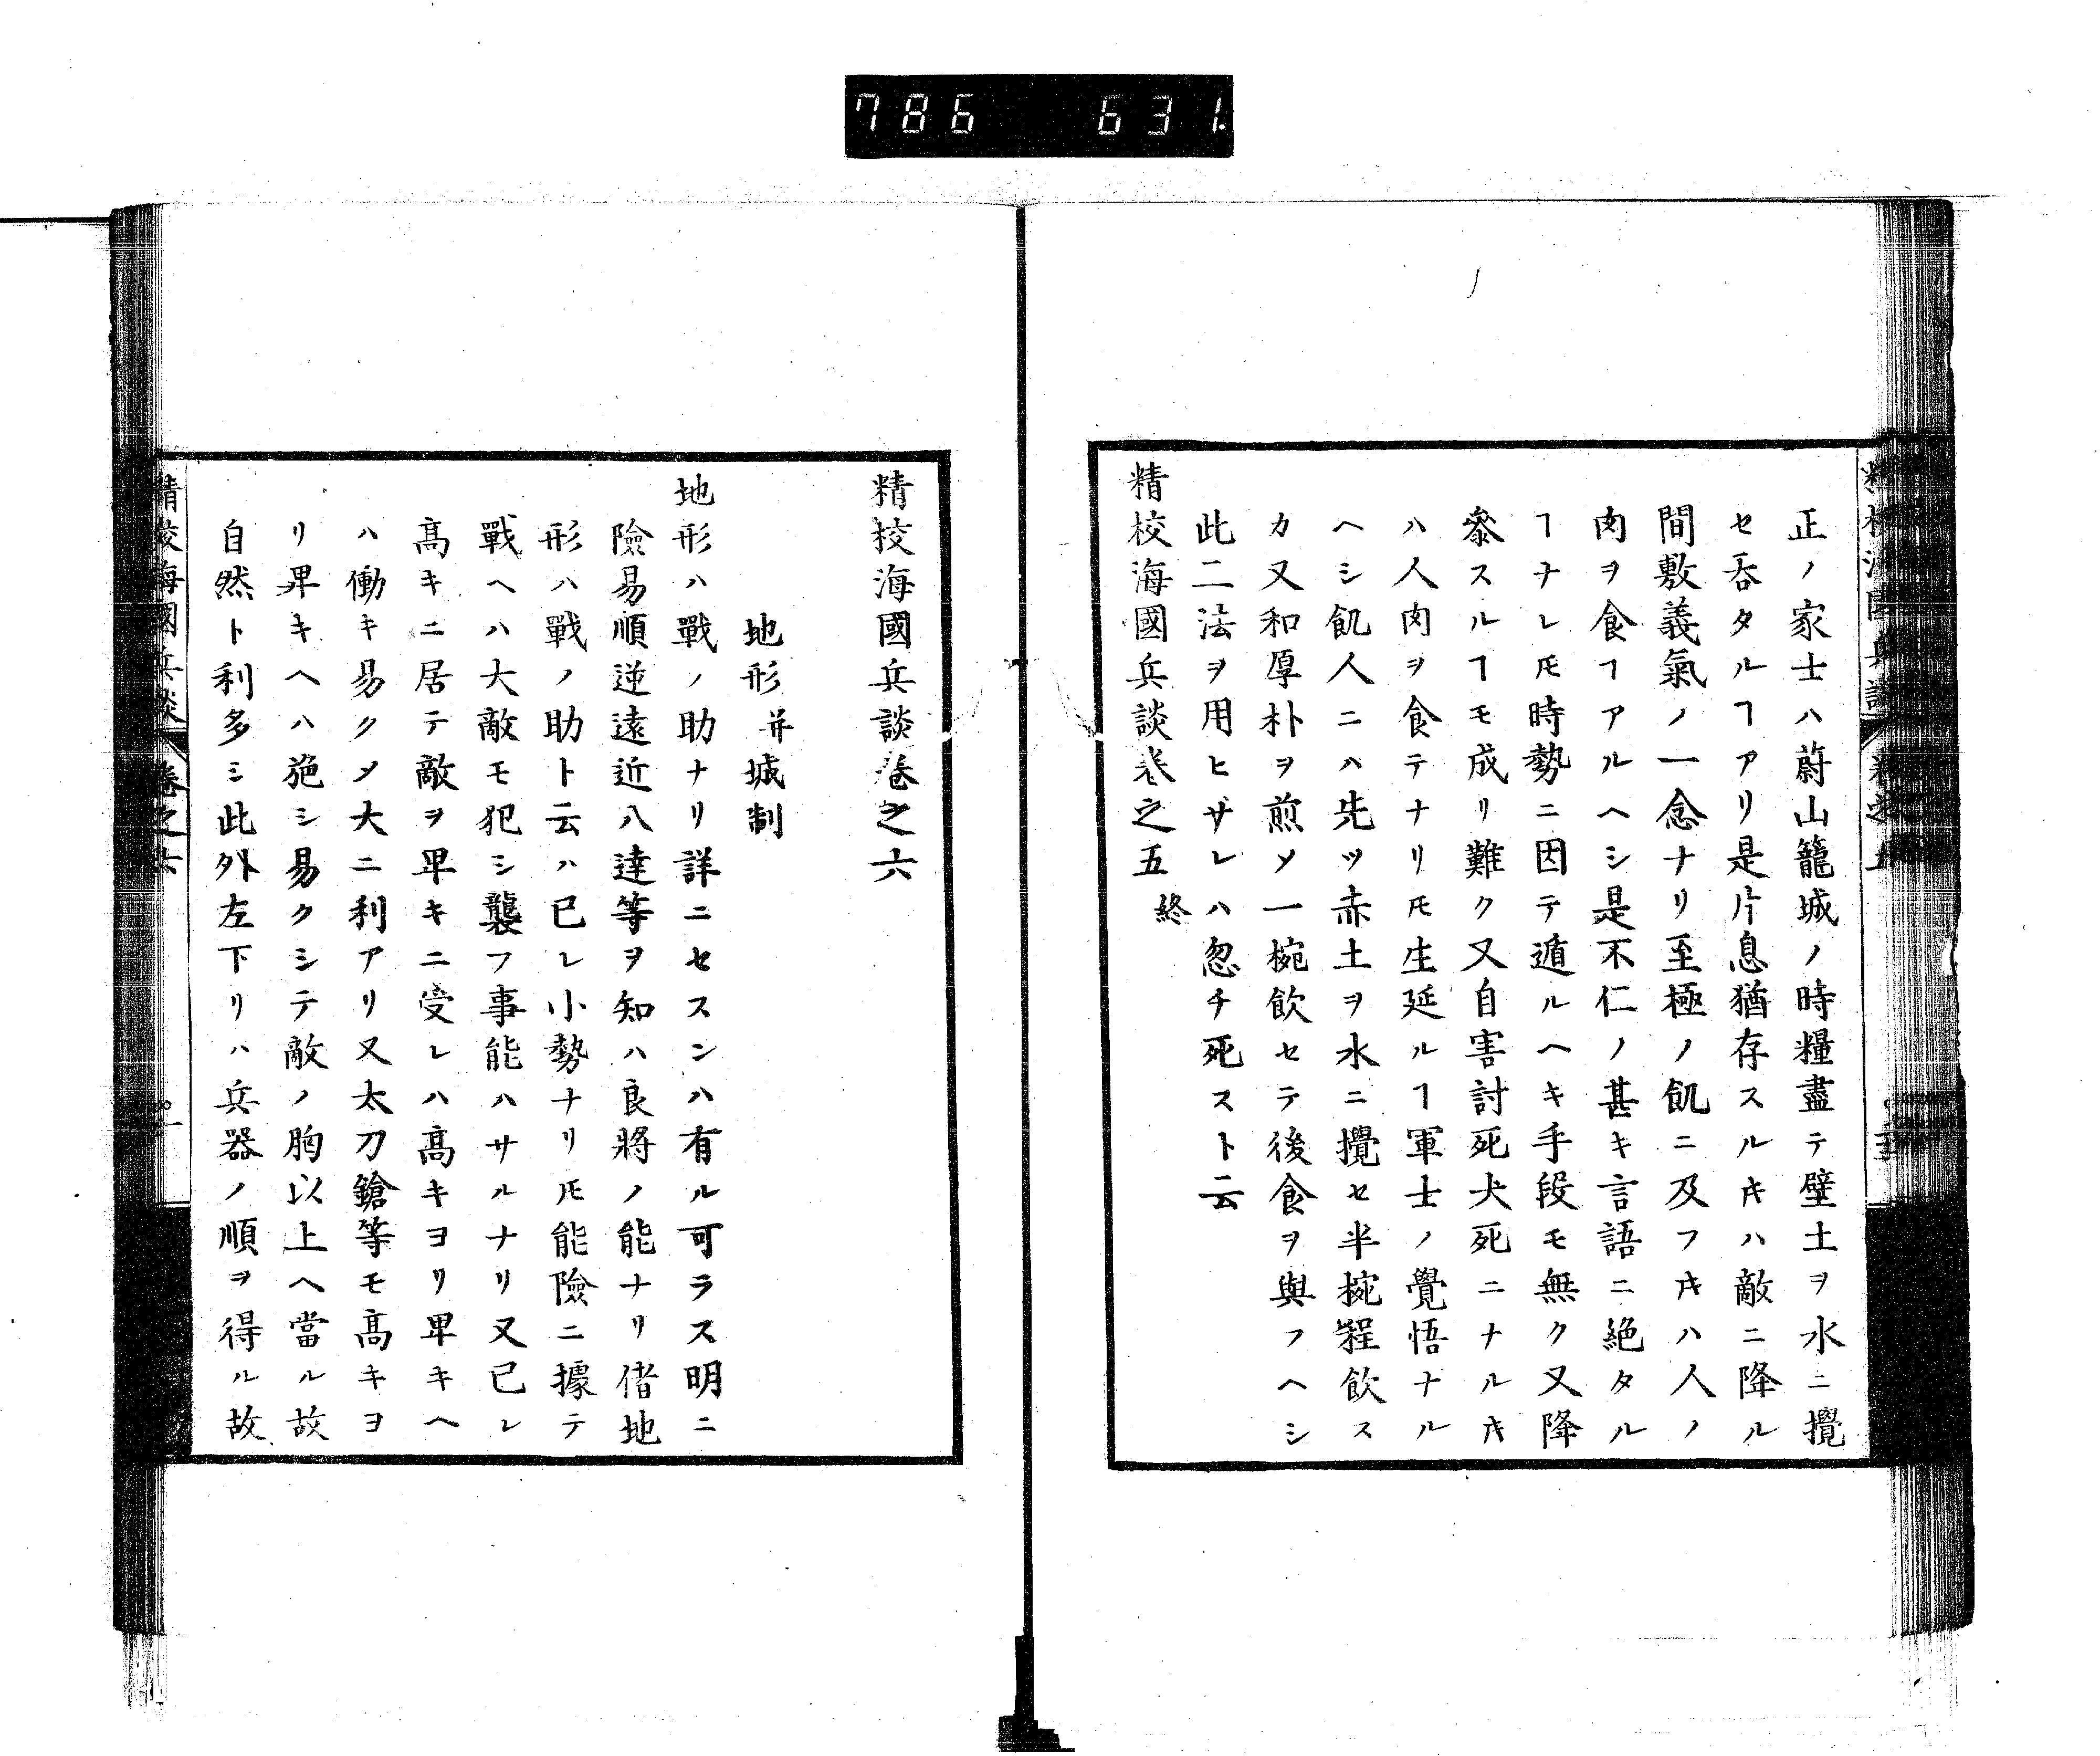 786 631.
正ノ家士ハ蔚山籠城ノ時糧盡テ壁土ヲ水ニ攪
セ呑タルヿアリ是片息猶存スルキハ敵ニ降ル
間敷義氣ノ一念ナリ至極ノ飢ニ及フキハ人ノ
肉ヲ食フヿアルヘシ是不仁ノ甚キ言語ニ絶タル
ヿナレ𪜈時勢ニ因テ遁ルヘキ手段モ無ク又降
參スルヿモ成リ難ク又自害討死犬死ニナルキ
ハ人肉ヲ食テナリ𪜈生延ルヿ軍士ノ覺悟ナル
ヘシ飢人ニハ先ツ赤土ヲ水ニ攪セ半椀程飲ス
カ又和厚朴ヲ煎ソ一椀飲セテ後食ヲ與フヘシ
此二法ヲ用ヒザレハ忽チ死スト云
精校海國兵談卷之五終
精校海國兵談卷之六
地形并城制
地形ハ戰ノ助ナリ詳ニセスンハ有ル可ラス明ニ
險易順逆遠近八達等ヲ知ハ良將ノ能ナリ偖地
形ハ戰ノ助ト云ハ已レ小勢ナリ𪜈能險ニ據テ
戰ヘハ大敵モ犯シ襲フ事能ハサルナリ又已レ
髙キニ居テ敵ヲ卑キニ受レハ髙キヨリ卑キヘ
ハ働キ易クソ大ニ利アリ又太刀鎗等モ髙キヨ
リ卑キヘハ施シ易クシテ敵ノ胸以上ヘ當ル故
自然ト利多シ此外左下リハ兵器ノ順ヲ得ル故
精校海國兵談 卷之六